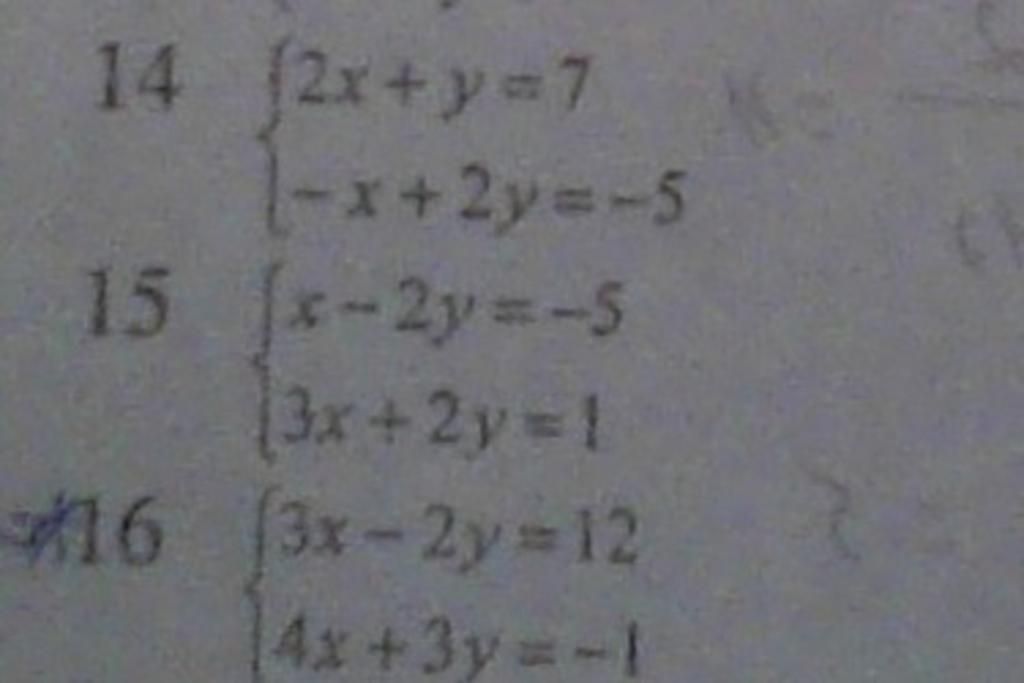 14 2x + y = 7
- x + 2y = -5
15 x - 2y = -5
3x + 2y = 1
16 3x - 2y = 12
4x + 3y = -1